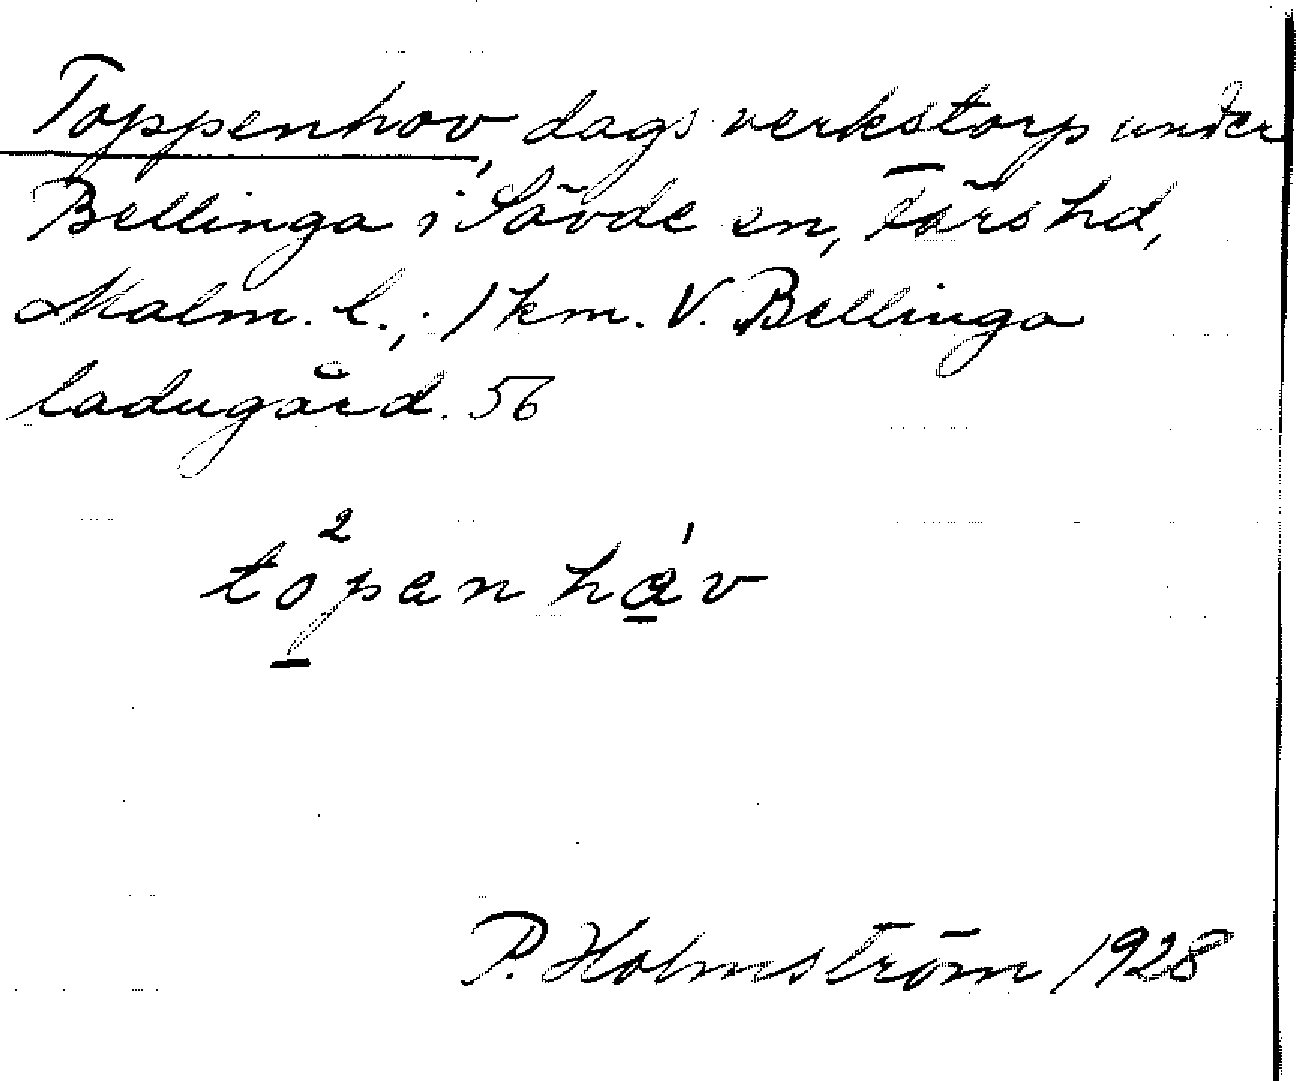 Toppenhov, dagsverkstorp under
Bellinga i Sövde sn, Färs hd,
Malm. l.; 1 km. V. Bellinga
ladugård. 56
to̲²penha̲´v
P. Holmström 1928